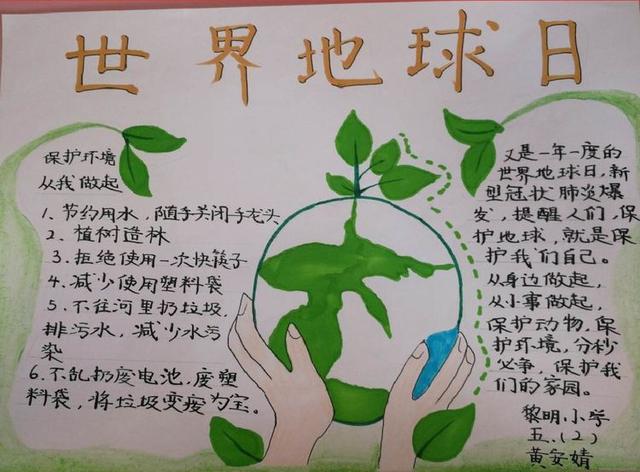 世界地球日
保护环境
从我做起
1、节约用水，随手关闭手龙头
2、植树造林
3、拒绝使用一次快筷子
4、减少使用塑料袋
5、不往河里扔垃圾，
排污水，减少水污
染
6、不乱扔废电池，废塑
料袋，将垃圾变废为宝。
又是一年一度的
世界地球日，新
型冠状肺炎爆
发，提醒人们，保
护地球，就是保
护我们自己。
从身边做起，
从小事做起，
保护动物，保
护环境，分秒
必争，保护我
们的家园。
黎明小学
五.（2）
黄安婧